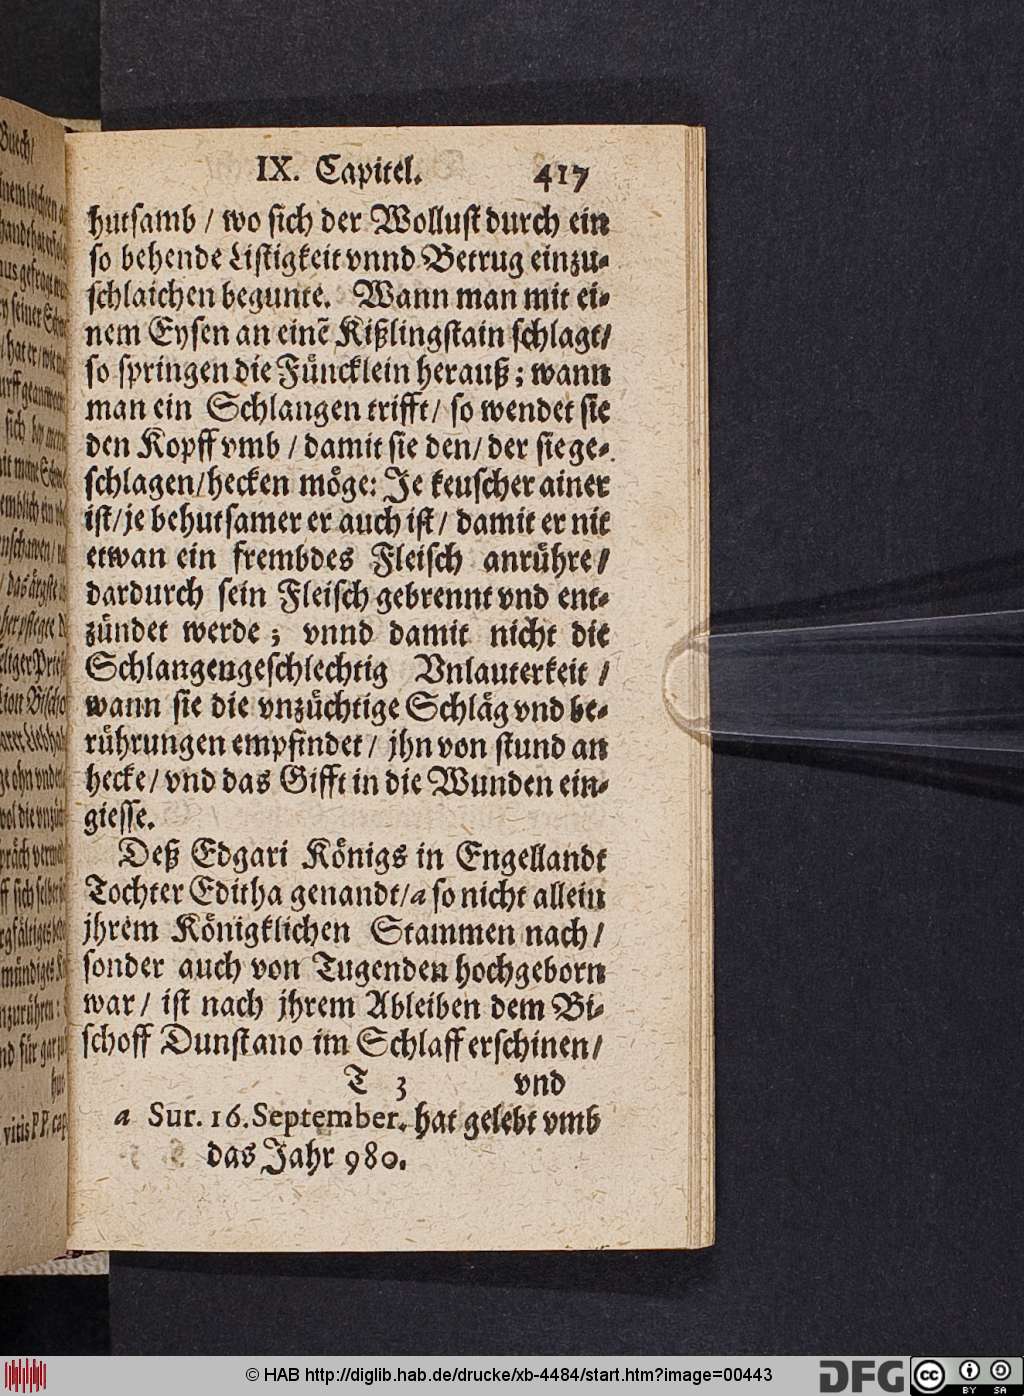 IX. Capitel. 417
hutsamb / wo sich der Wollust durch ein
so behende Listigkeit vnnd Betrug einzu-
schlaichen begunte. Wann man mit ei-
nem Eysen an einẽ Kißlingstain schlagt/
so springen die Fuͤncklein herauß; wann
man ein Schlangen trifft/ so wendet sie
den Kopff vmb / damit sie den/ der sie ge-
schlagen/hecken moͤge: Je keuscher ainer
ist/je behutsamer er auch ist/ damit er nit
etwan ein frembdes Fleisch anruͤhre/
dardurch sein Fleisch gebrennt vnd ent-
zuͤndet werde; vnnd damit nicht die
Schlangengeschlechtig Vnlauterkeit /
wann sie die vnzuͤchtige Schlaͤg vnd be-
ruͤhrungen empfindet/ jhn von stund an
hecke/ vnd das Gifft in die Wunden ein-
giesse.
Deß Edgari Koͤnigs in Engellandt
Tochter Editha genandt/a so nicht allein
jhrem Koͤnigklichen Stammen nach/
sonder auch von Tugenden hochgeborn
war/ ist nach jhrem Ableiben dem Bi-
schoff Dunstano im Schlaff erschinen/
T 3 vnd
a Sur. 16. September. hat gelebt vmb
das Jahr 980.
Buech/
© HAB http://diglib.hab.de/drucke/xb-4484/start.htm?image=00443
DFG
cc
BY SA